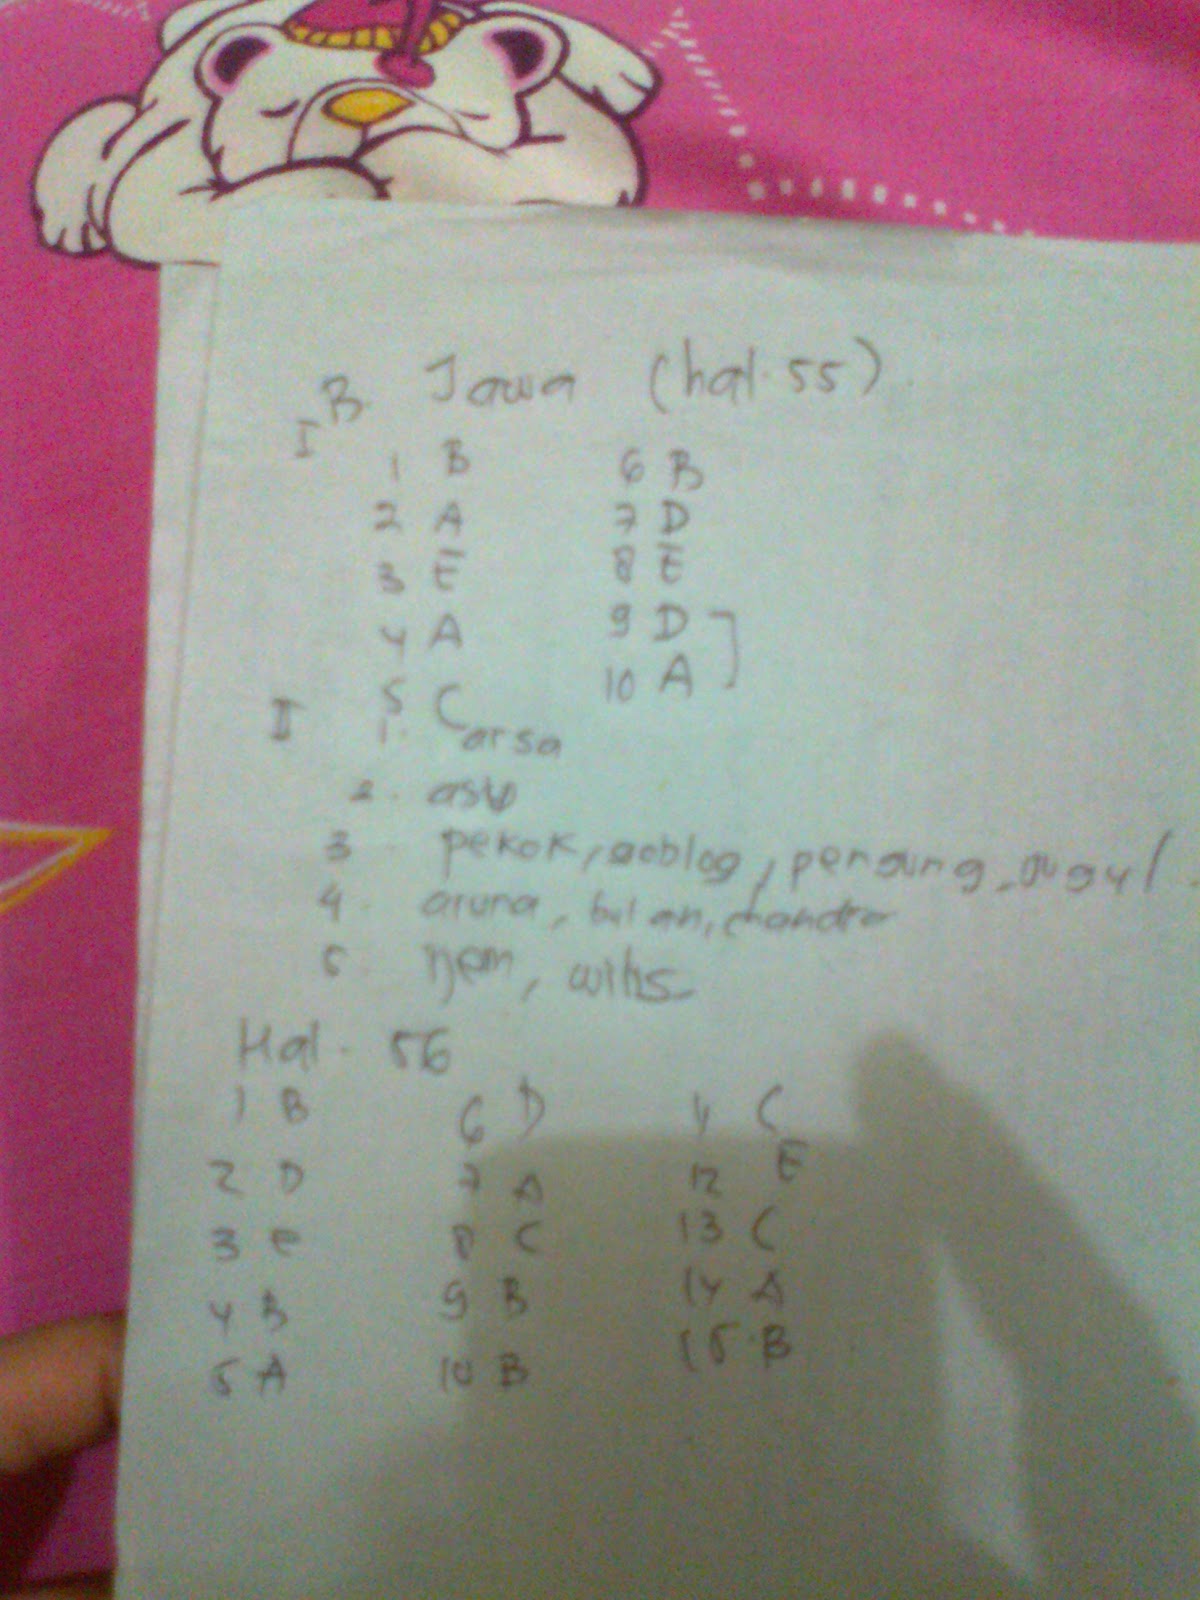 B. Jawa (hal. 55)
I
1 B 6 B
2 A 7 D
3 E 8 E
4 A 9 D
5 C 10 A
II 1. arsa
2.
3. pekok, goblog, pengung,
4. aruna, bulan, chandra
5. ijem, wilis
Hal. 56
1 B 6 D 11 C
2 D 7 A 12 E
3 e 8 C 13 C
4 B 9 B 14 A
5 A 10 B 15. B